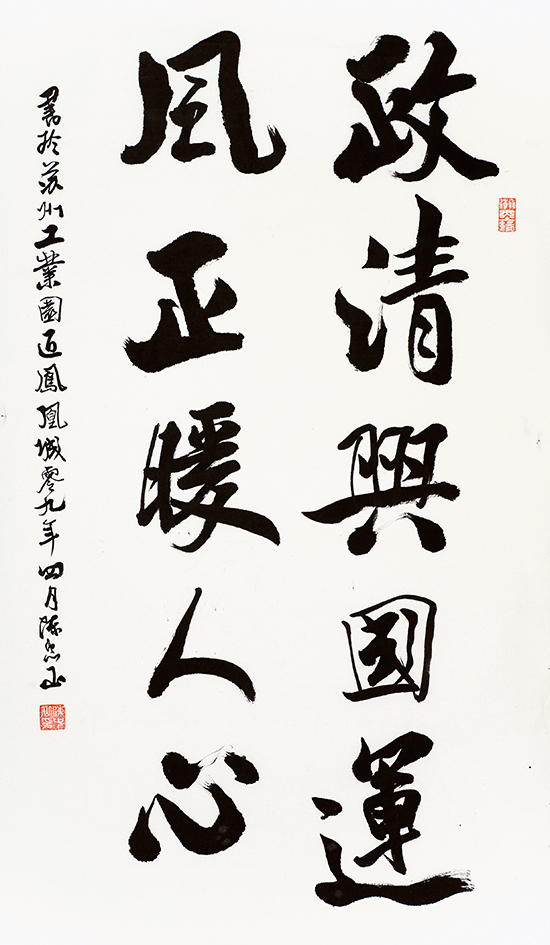 政清興國運
風正暖人心
書於蘇州工業園區鳳凰城零九年四月陳玉